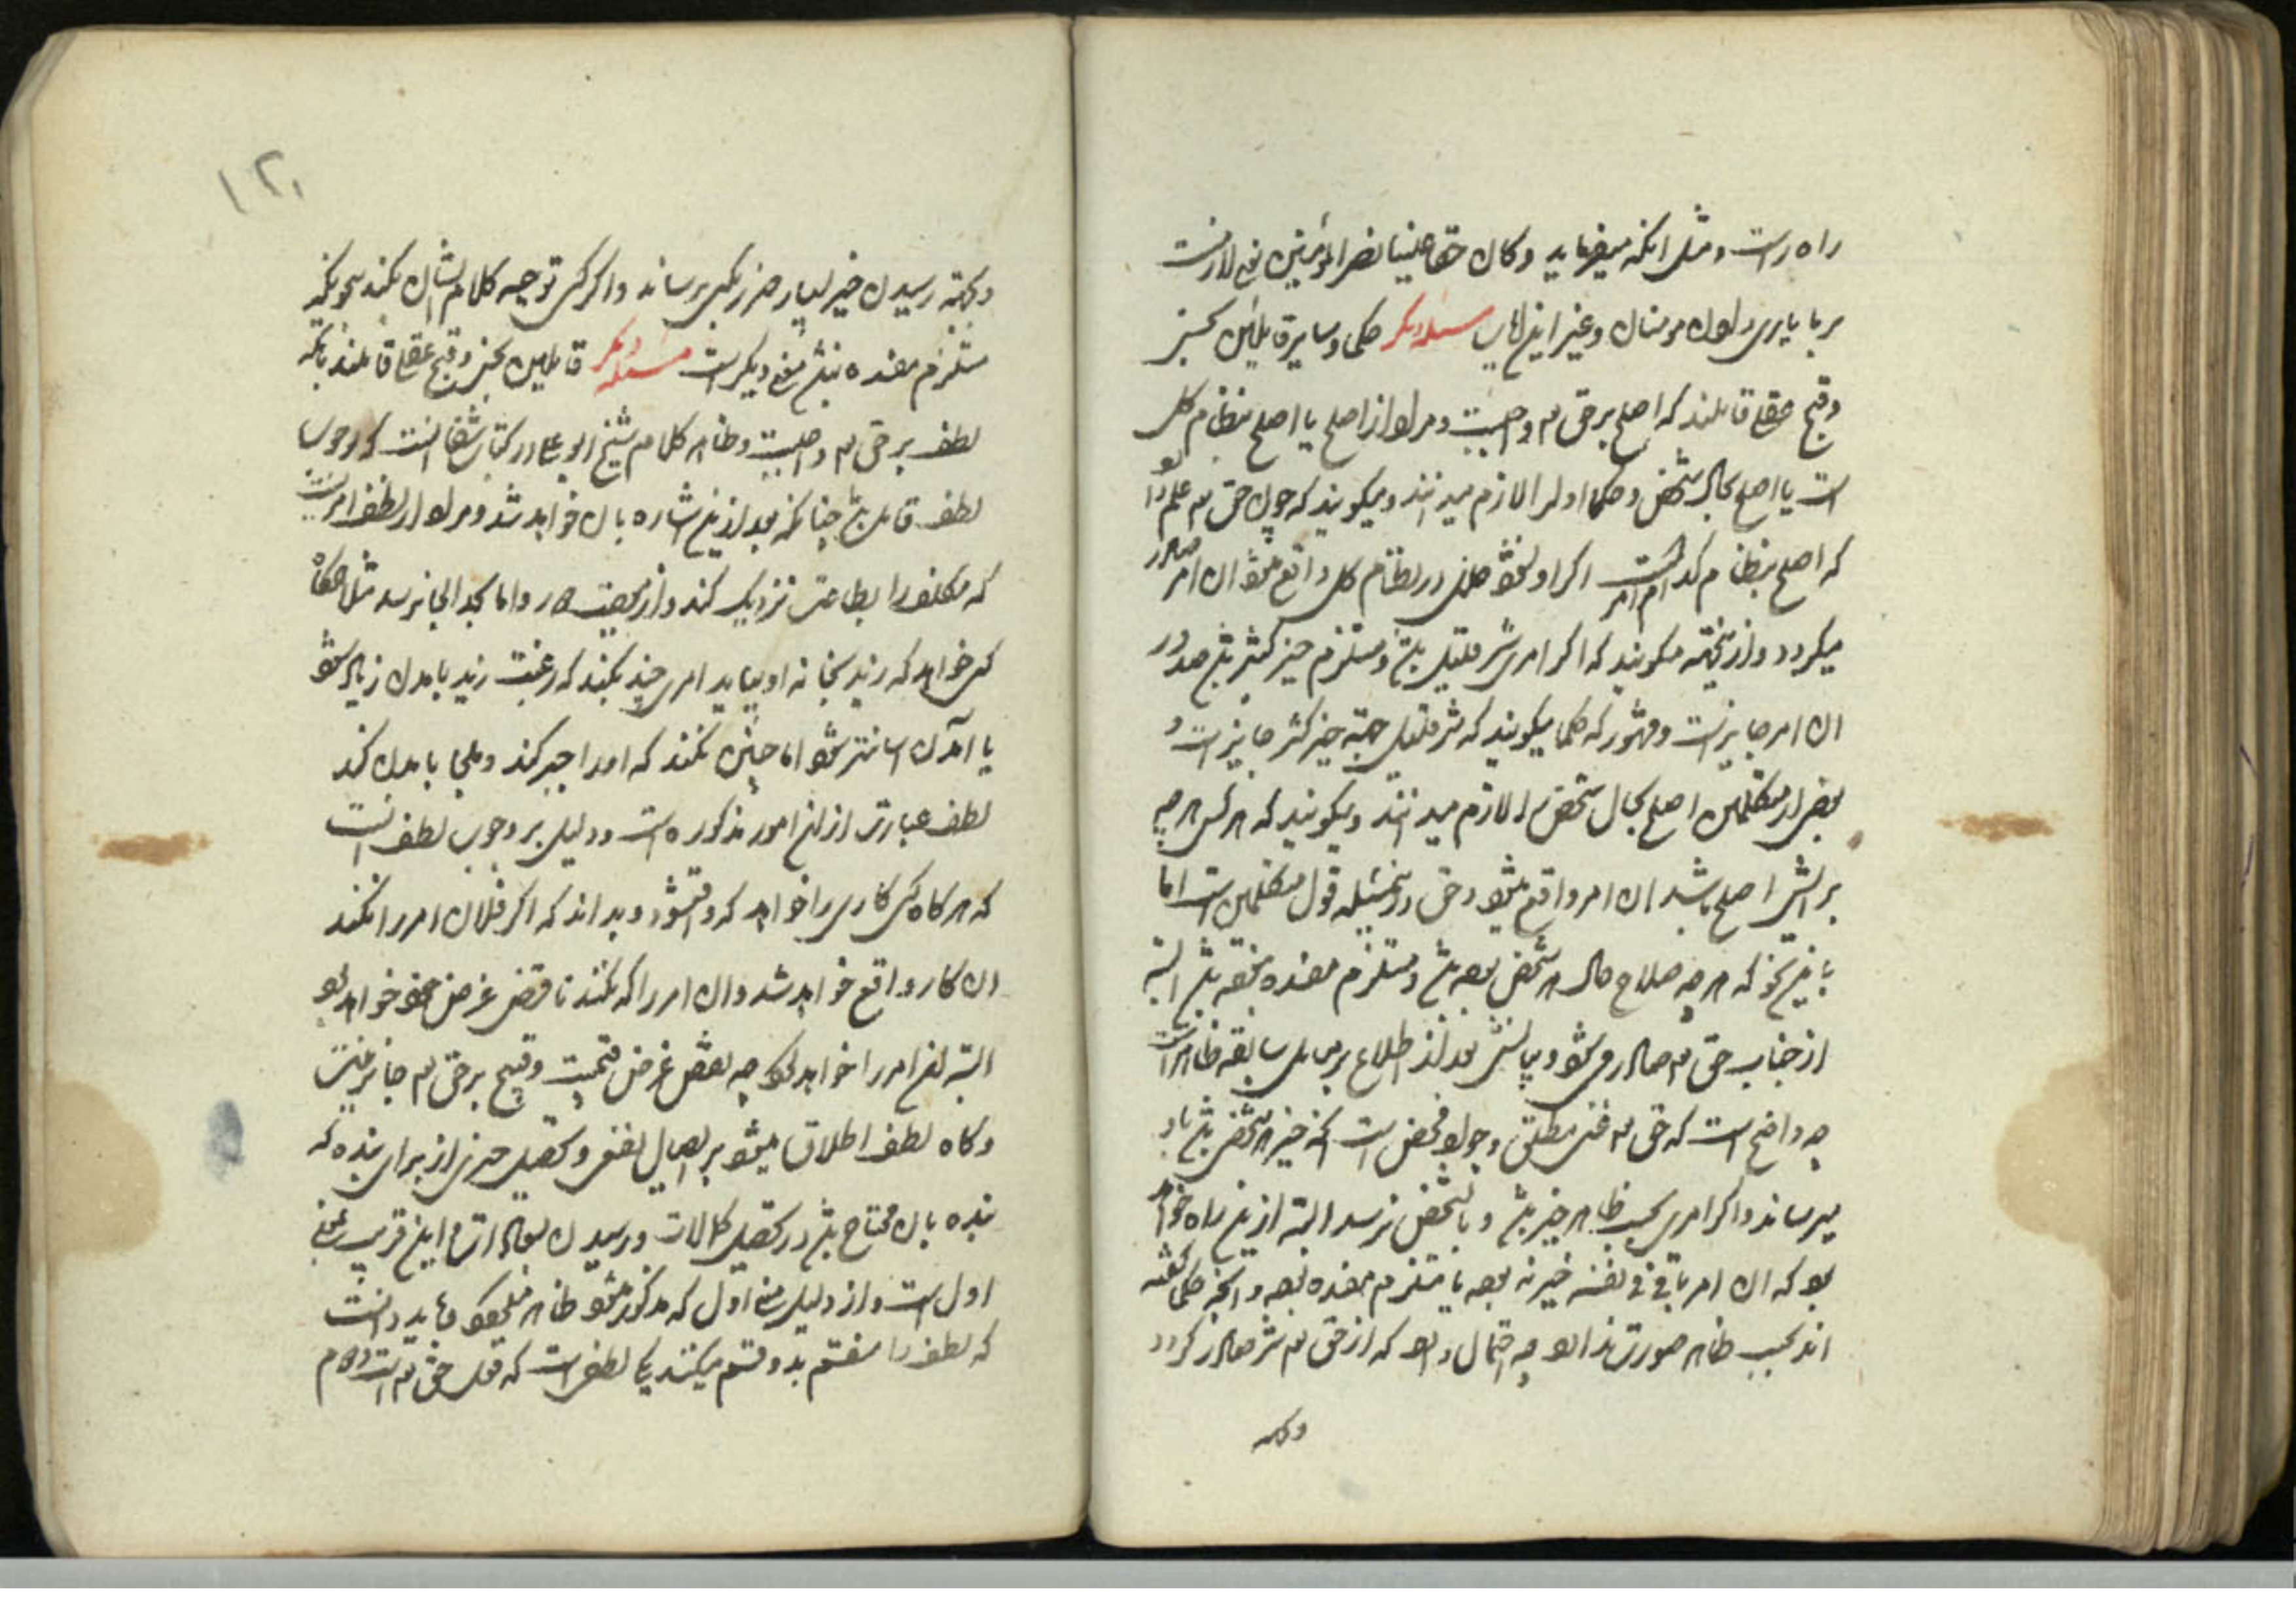 راه راست و مثل انکه میفرماید و کان حقا علینا نصر المؤمنین یعنی لازمست
بر ما یاری دادن مومنان و غیر این ایات مسئله دیکر حکما و سایر قایلین بحسن
و قبح عقلی قایلند که اصلح بر حق تعالی واجبست و مراد از اصلح یا اصلح بنظام کل
است یا اصلح بحال شخص و حکما اول را لازم میدانند و میکویند که چون حق تعالی علم دارد
که اصلح بنظام کدام امر است اکر او نشود خللی در نظام کل واقع میشود ان امر صادر
میکردد و از ینجهة میکویند که اکر امری شر قلیل باشد و مستلزم خیر کثیر باشد صدور
ان امر جایز است و مشهور که حکما میکویند که شر قلیل بجهة خیر کثیر جایز است و
بعضی از متکلمین اصلح بحال شخص را لازم میدانند و میکویند که هر کس هر چه
برایش اصلح باشد ان امر واقع میشود و حق در ینمسئله قول متکلمین است اما
بایننحو که هر چه صلاح حال هر شخص بوده باشد و مستلزم مفسده نبوده باشد البته
از جناب حق تعالی صادر میشود و بیانش بعد از اطلاع بر مسایل سابقه ظاهر است
چه واضح است که حق تعالی غنی مطلق و جواد محض است انچه خیر هر شخص باشد باو
میرساند و اکر امری بحسب ظاهر خیر باشد و بانشخص نرسد البته از ین راه خواهد
بود که ان امر یا فی نفسه خیر نبوده یا مستلزم مفسده بوده و انچه حکما کفته
اند بحسب ظاهر صورت ندارد چه احتمال دارد که از حق تعالی شر صادر کردد
و بجهة
۱۲۰
و بجهة رسیدن خیر بسیار ضرر بکسی برساند و اکر کسی توجیه کلام ایشان بکند بنحویکه
مستلزم مفسده نباشد معنی دیکر است مسئله دیکر قایلین بحسن و قبح عقلی قایلند بانکه
لطف بر حق تعالی واجبست و ظاهر کلام شیخ ابو علی در کتاب شفا انست که بوجوب
لطف قایل باشد چنانکه بعد از ین اشاره بان خواهد شد و مراد از لطف امریست
که مکلف را بطاعت نزدیک کند و از معصیت دور و اما بحد الجا نرسد مثل انکاه
کسی خواهد که زید بخانه او بیاید امری چند بکند که رغبت زید بامدن زیاد شود
یا امدن اسانتر شود اما چنین نکند که او را جبر کند و ملجا بامدن کند
لطف عبارت از این امور مذکوره است و دلیل بر وجوب لطف انست
که هر کاه کسی کاری را خواهد که واقع شود و بداند که اکر فلان امر را نکند
ان کار واقع نخواهد شد و ان امر را که نکند ناقض غرض خود خواهد بود
البته این امر را خواهد کرد چه نقض غرض قبیحست و قبیح بر حق تعالی جایز نیست
و کاه لطف اطلاق میشود بر ایصال نفعی و تحصیل خیری از برای بنده که
بنده بان محتاج باشد در تحصیل کمالات و رسیدن بسعادات و این قریب بمعنی
اول است و از دلیل معنی اول که مذکور شد ظاهر میشود و باید دانست
که لطف را منقسم بدو قسم میکنند یکی لطفی است که فعل حق تعالی است دوم